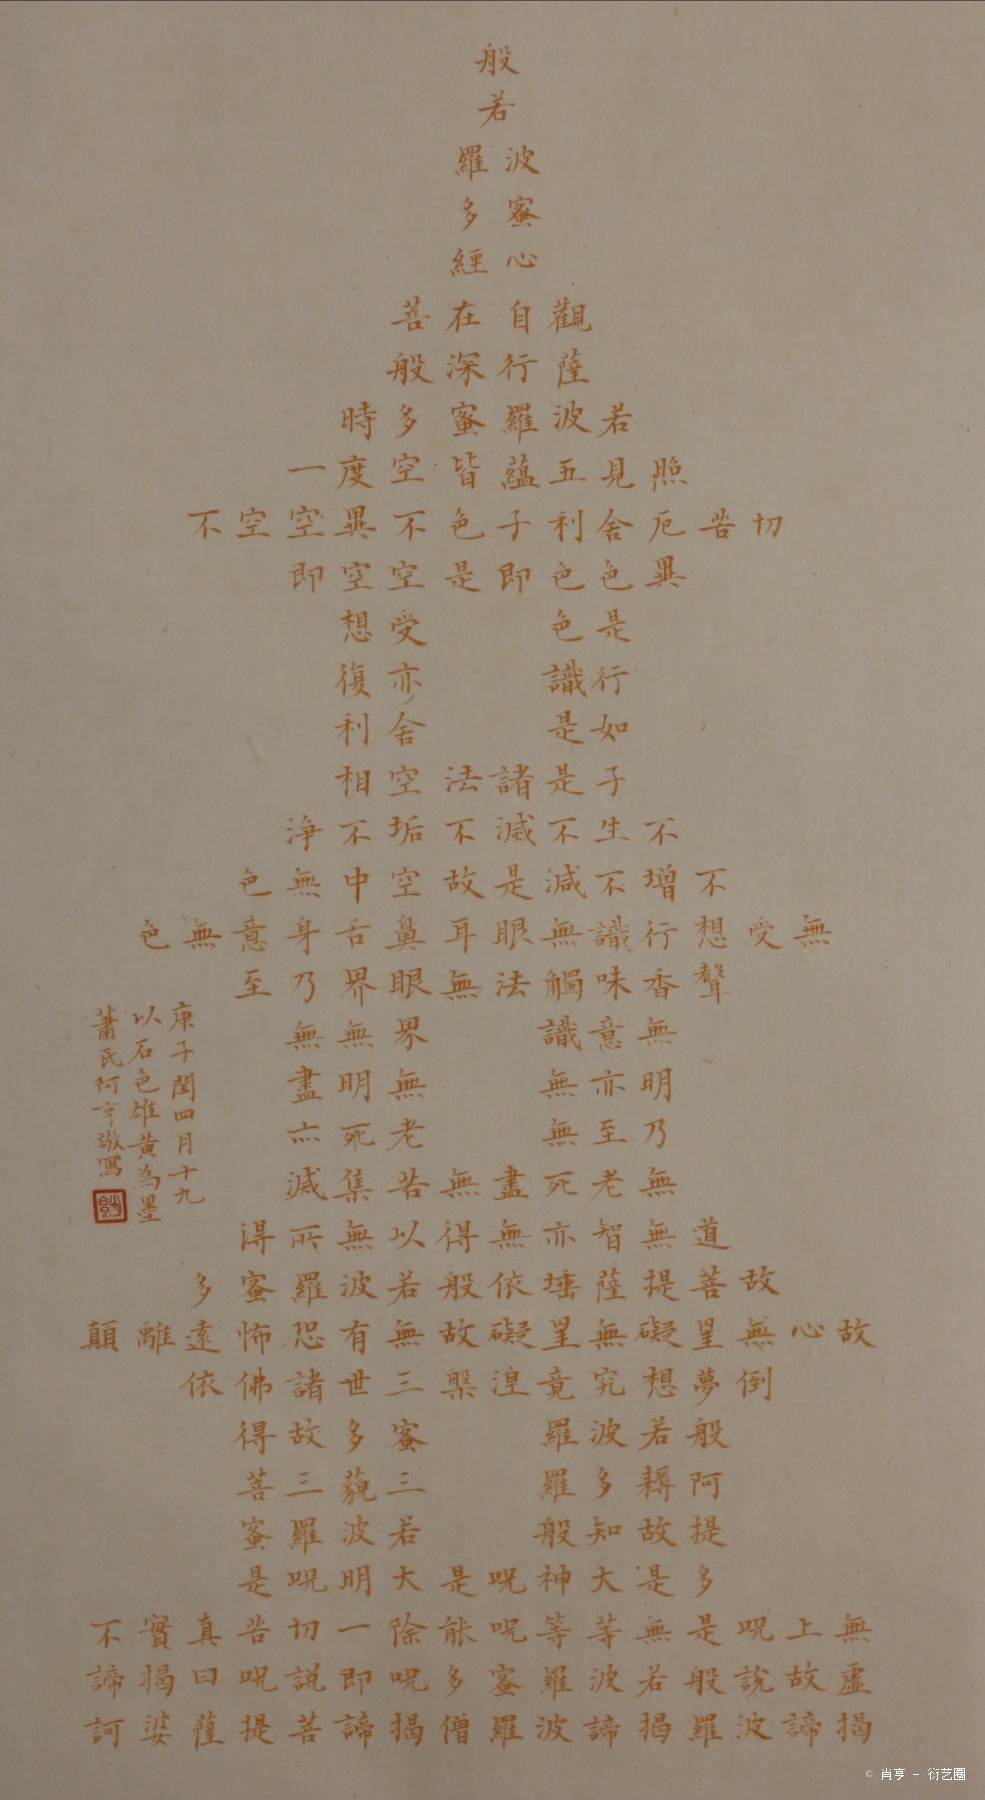 般
若
波羅
蜜多
心經
觀自在菩
薩行深般
若波羅蜜多時
照見五蘊皆空度一
切苦厄舍利子色不異空空不
異色色即是空空即
是色受想
行識亦復
如是舍利
子是諸法空相
不生不滅不垢不淨
不增不減是故空中無色
無受想行識無眼耳鼻舌身意無色
聲香味觸法無眼界乃至
無意識界無無
明亦無無明盡
乃至無老死亦
無老死盡無苦集滅
道無智亦無得以無所得
故菩提薩埵依般若波羅蜜多
故心無罣礙無罣礙故無有恐怖遠離顛
倒夢想究竟涅槃三世諸佛依
般若波羅蜜多故得
阿耨多羅三藐三菩
提故知般若波羅蜜
多是大神咒是大明咒是
無上咒是無等等咒能除一切苦真實不
虛故說般若波羅蜜多咒即説咒曰揭諦
揭諦波羅揭諦波羅僧揭諦菩提薩婆訶
庚子閏四月十九
以石色雄黄為墨
蕭氏阿亨敬寫
© 肖亨 - 衍艺圈